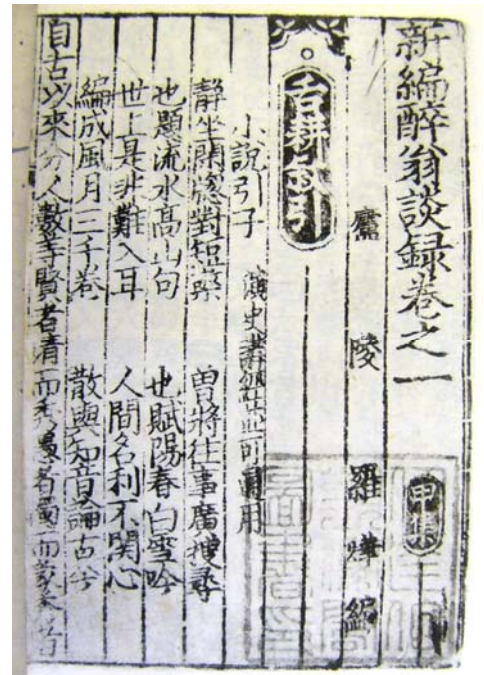 新編醉翁談録卷之一 甲集
廬陵 羅燁 編
舌耕敘引
小說引子 演史講經並可通用
靜坐閑窓對短檠 曾將往事廣搜尋
也題流水高山句 也賦陽春白雪吟
世上是非難入耳 人間名利不關心
編成風月三千卷 散與知音論古今
自古以來分人數等賢者清而秀愚者濁而蒙